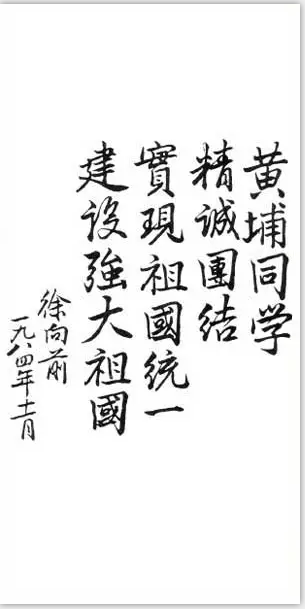 黄埔同学
精诚團结
實現祖國統一
建设強大祖國
徐向前
一九八四年十一月